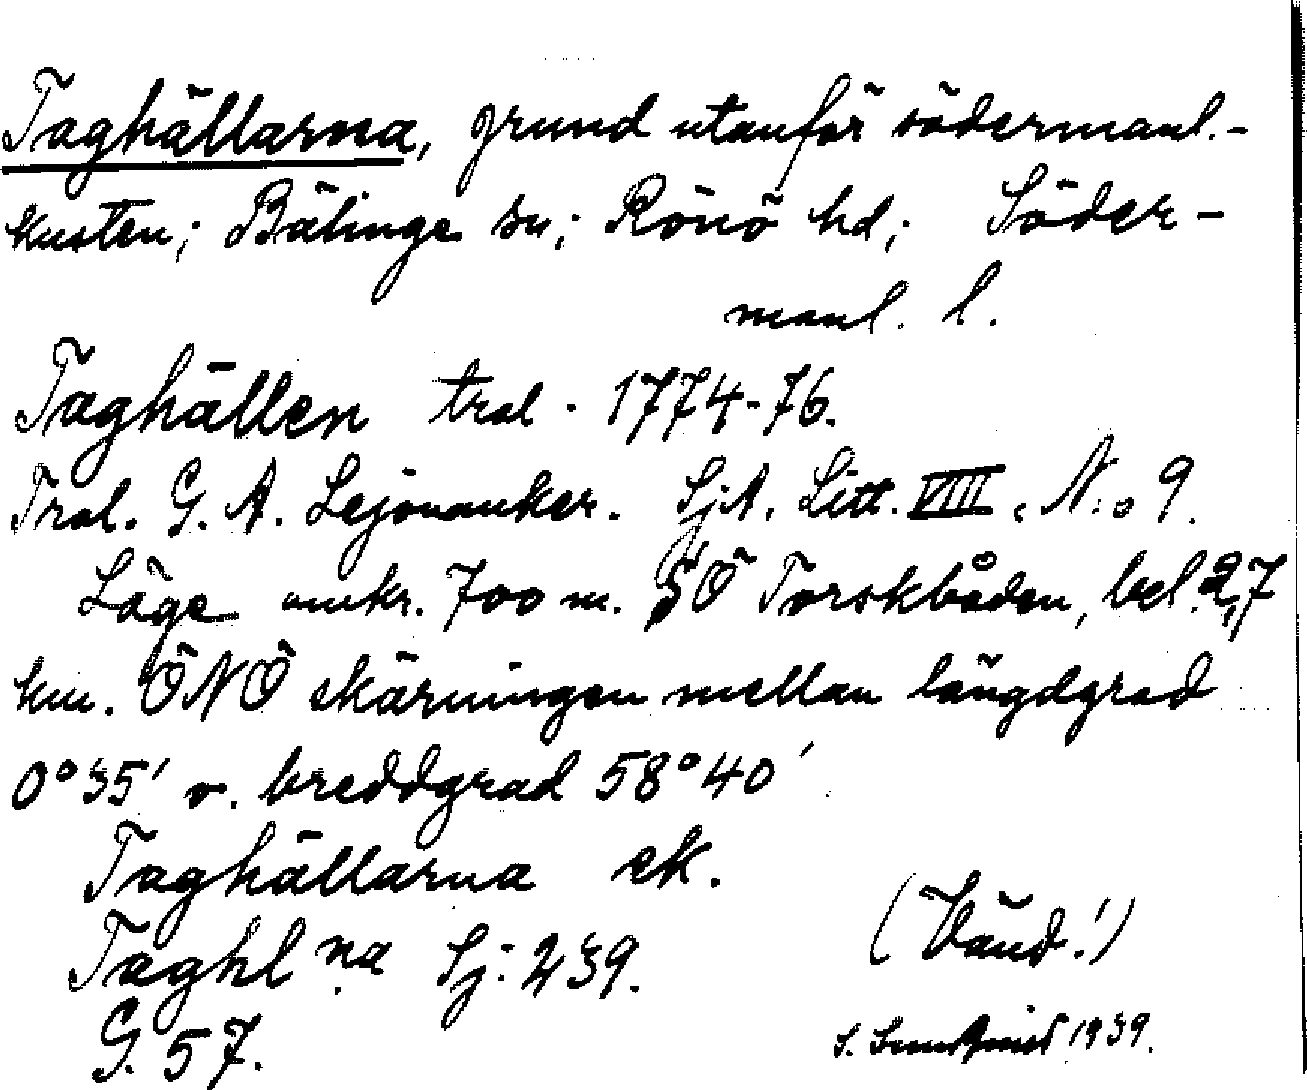 Taghällarna, grund utanför södermanl.-
kusten; Bälinge sn; Rönö hd; Söder-
manl. l.
Taghällen tral. 1774-76.
Tral. G. A. Lejonanker. SjA. Litt. VIIII, N:o 9.
Läge omkr. 700 m. SÖ Torskbåden, bel. 2,7
km. ÖNÖ skärningen mellan längdgrad
0°35' o. breddgrad 58°40'
Taghällarna ek.
Taghl na Sj: 239.
G. 57.
(Vänd!)
S. 1939.